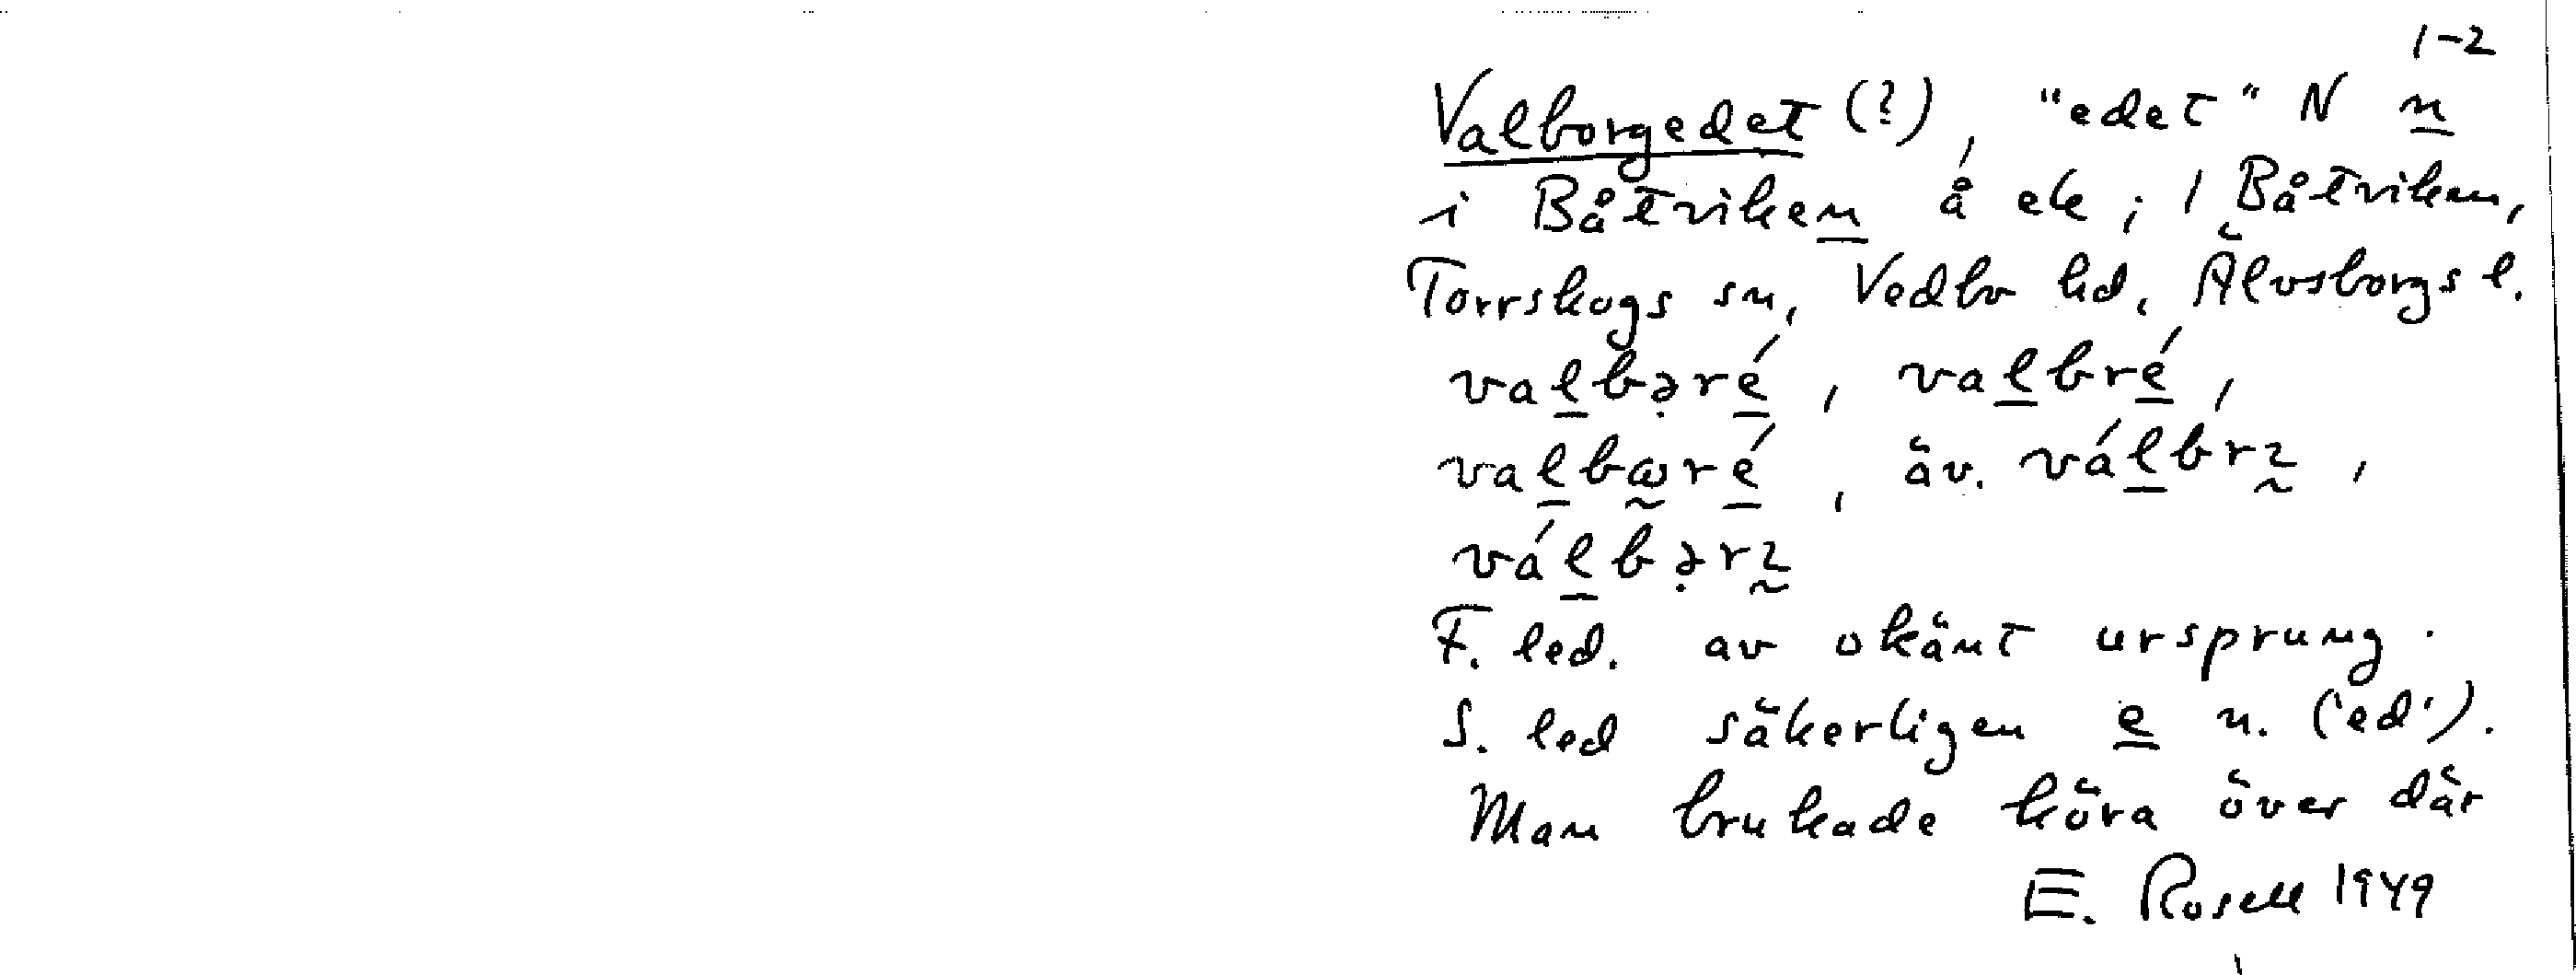 1-2
Valborgedet (?), "edet" N n
i Båtviken å ek; 1 Båtviken,
Torrskogs sn, Vedbo hd, Älvsborgs l.
valbəré, valbré,
äv.
F. led. av okänt ursprung.
S. led säkerligen e n. ('ed').
Man brukade köra över där
E. Rosell 1949